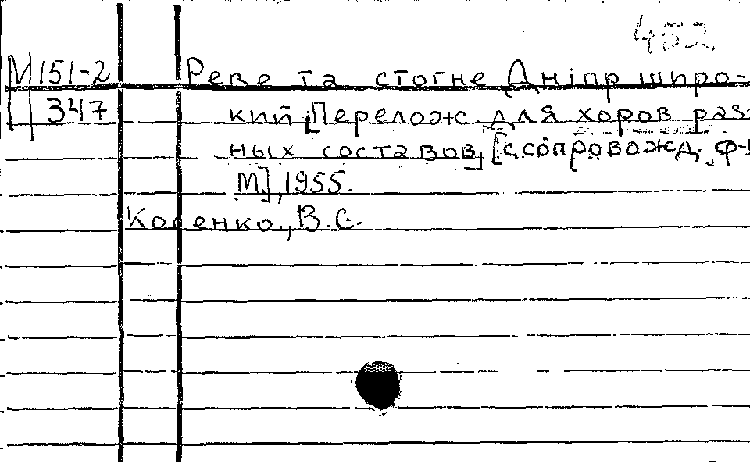 452
М 151-2 Реве та стогне Дніпр широ-
347 кий [Перелож. для хоров раз-
ных составов, [с сопровожд. ф-
М], 1955.
Косенко, В. С.